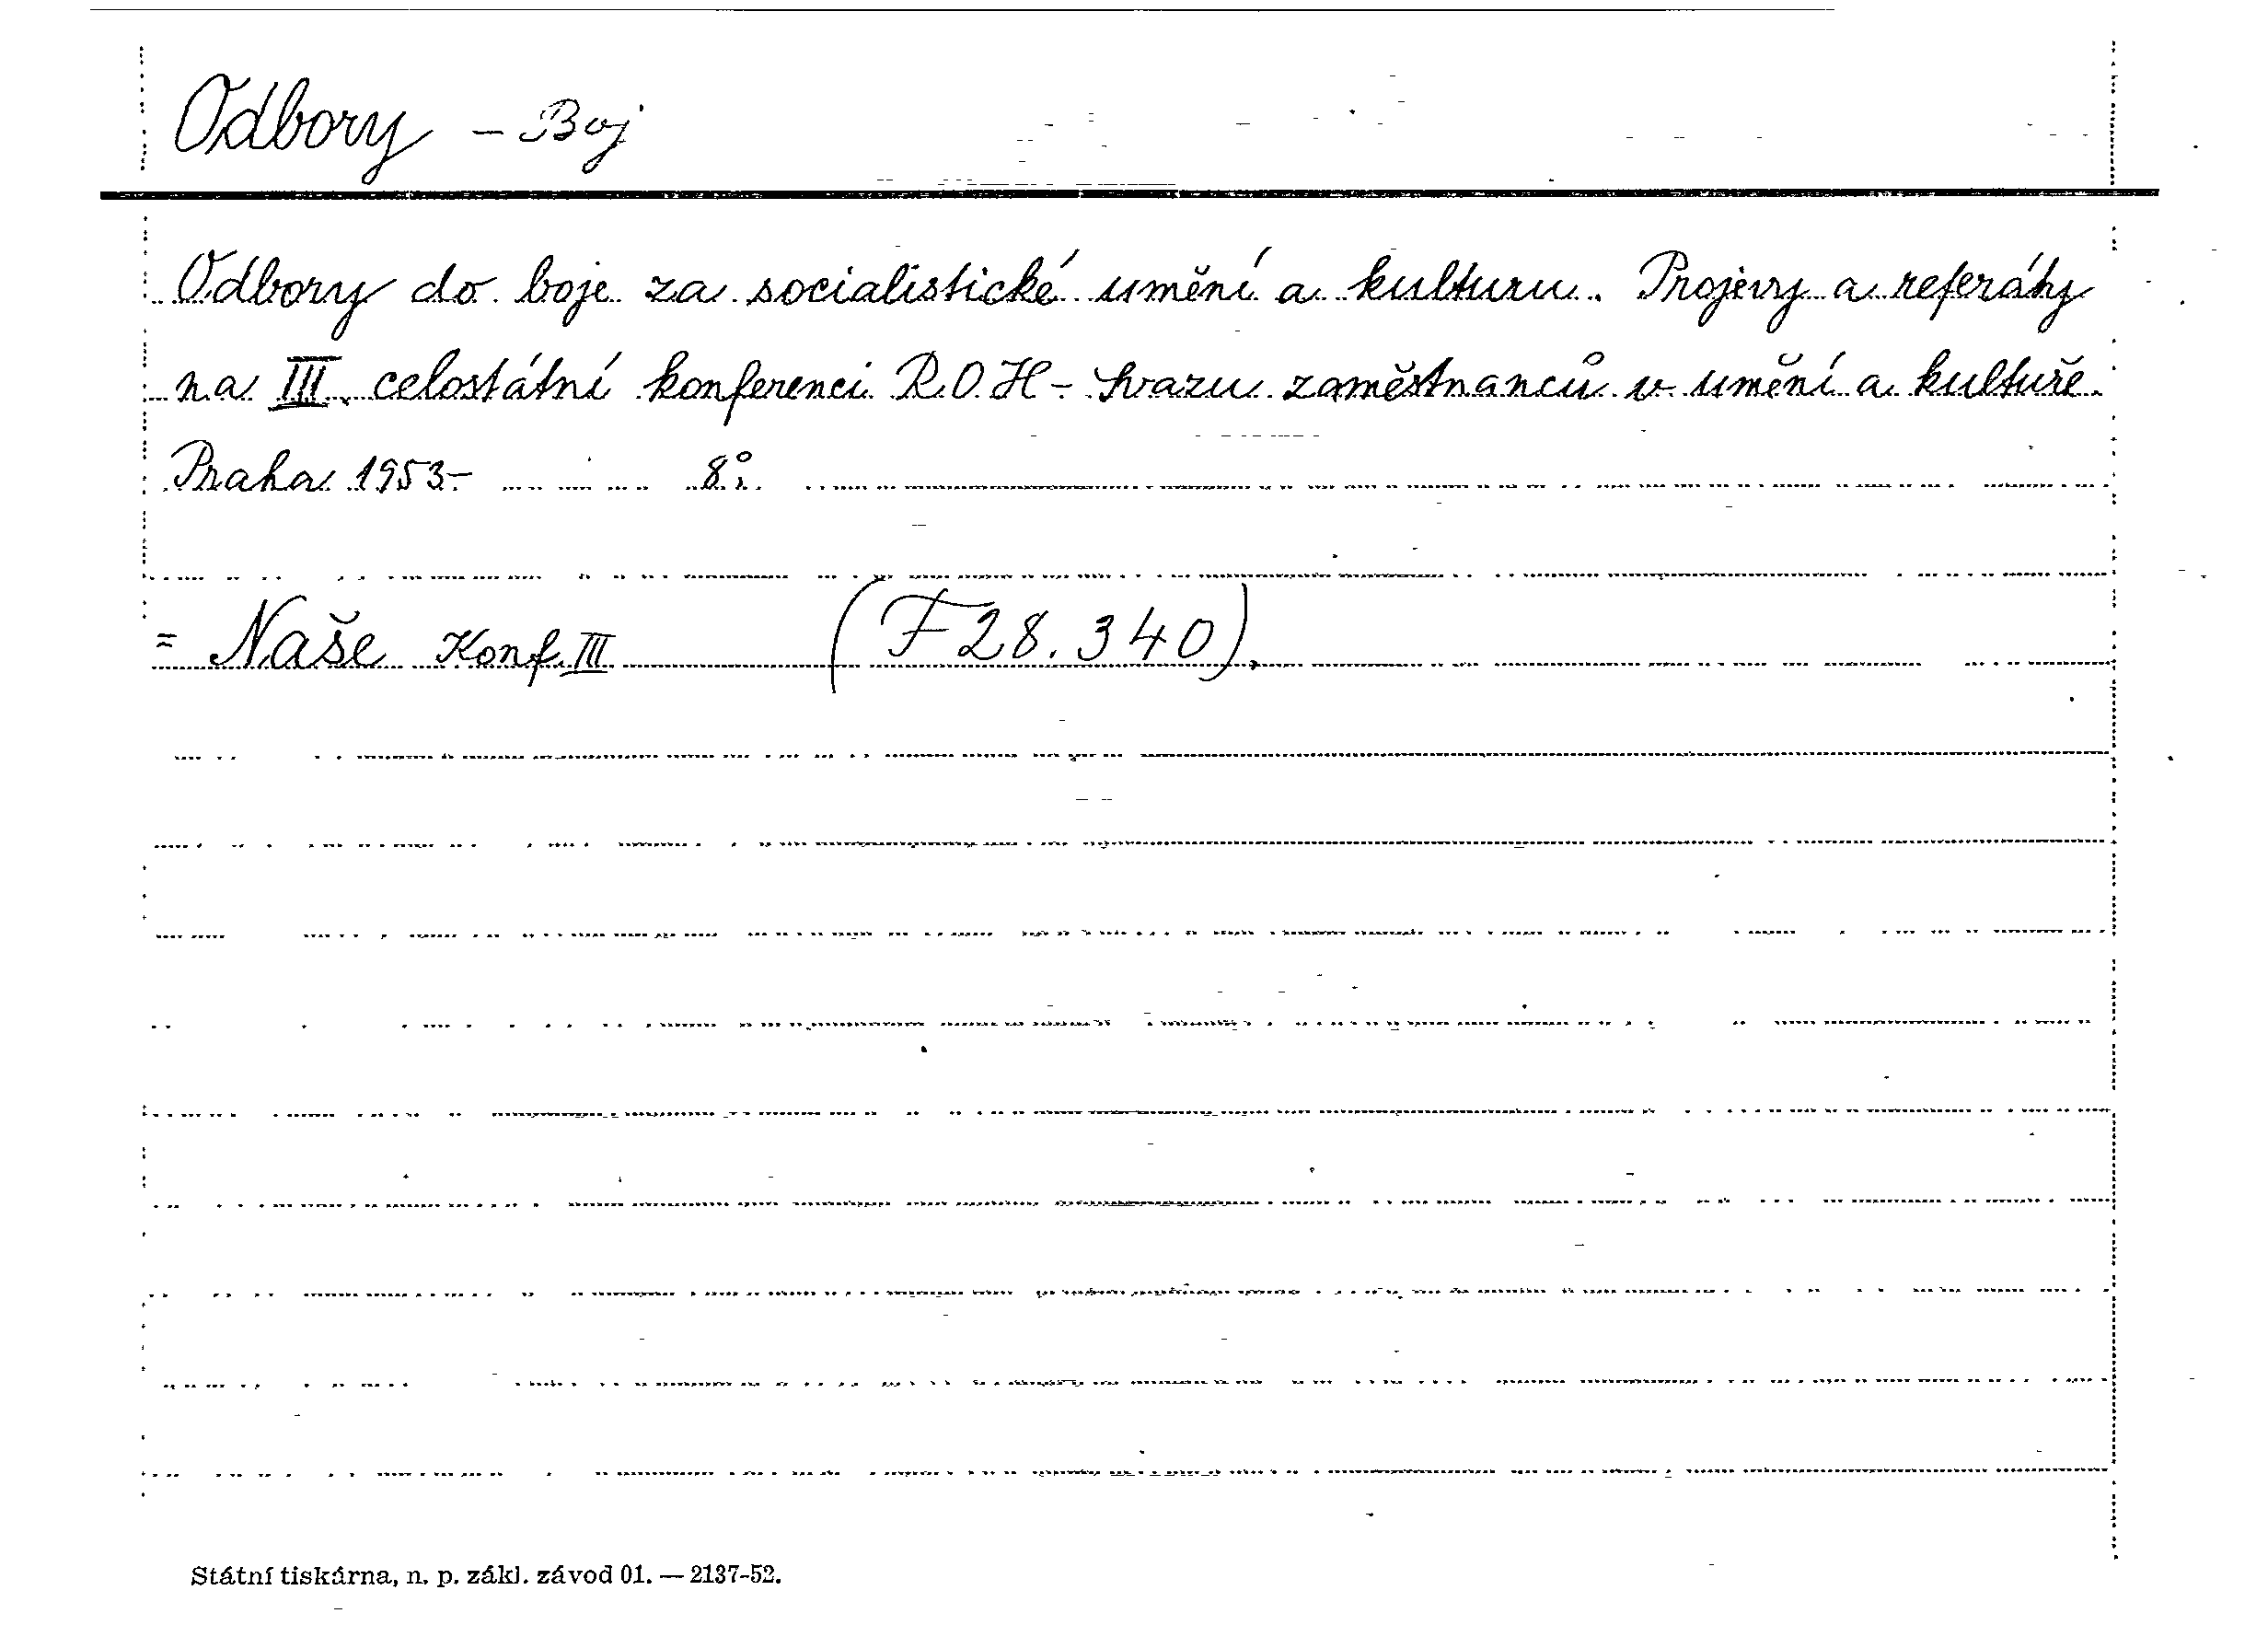 Odbory - Boj
Odbory do boje za socialistické umění a kulturu. Projevy a referáty
na III. celostátní konferenci R.O.H - Svazu zaměstnanců v umění a kultuře.
Praha 1953- 8°.
= Naše Konf. III (F 28.340).
Státní tiskárna, n. p. zákl. závod 01. — 2137-52.